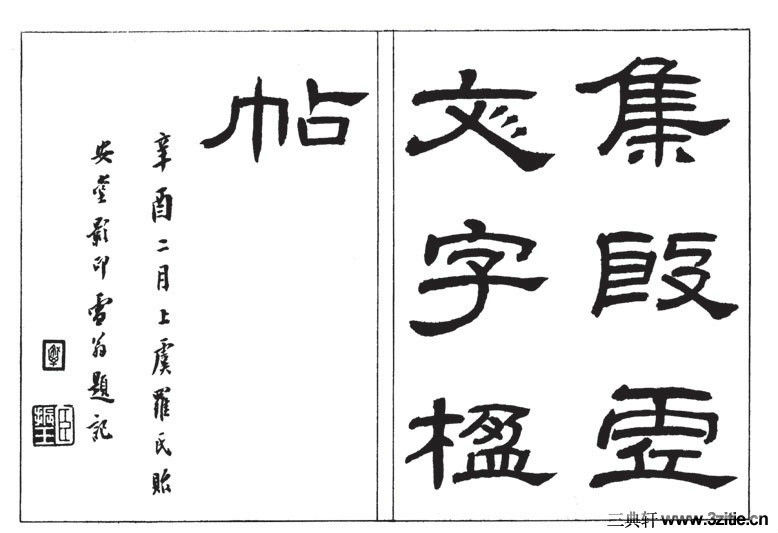 集殷虚
文字楹
帖
辛酉二月上虞羅氏貽
安堂影印雪翁題記
臣振玉
三典轩 www.3zitie.cn